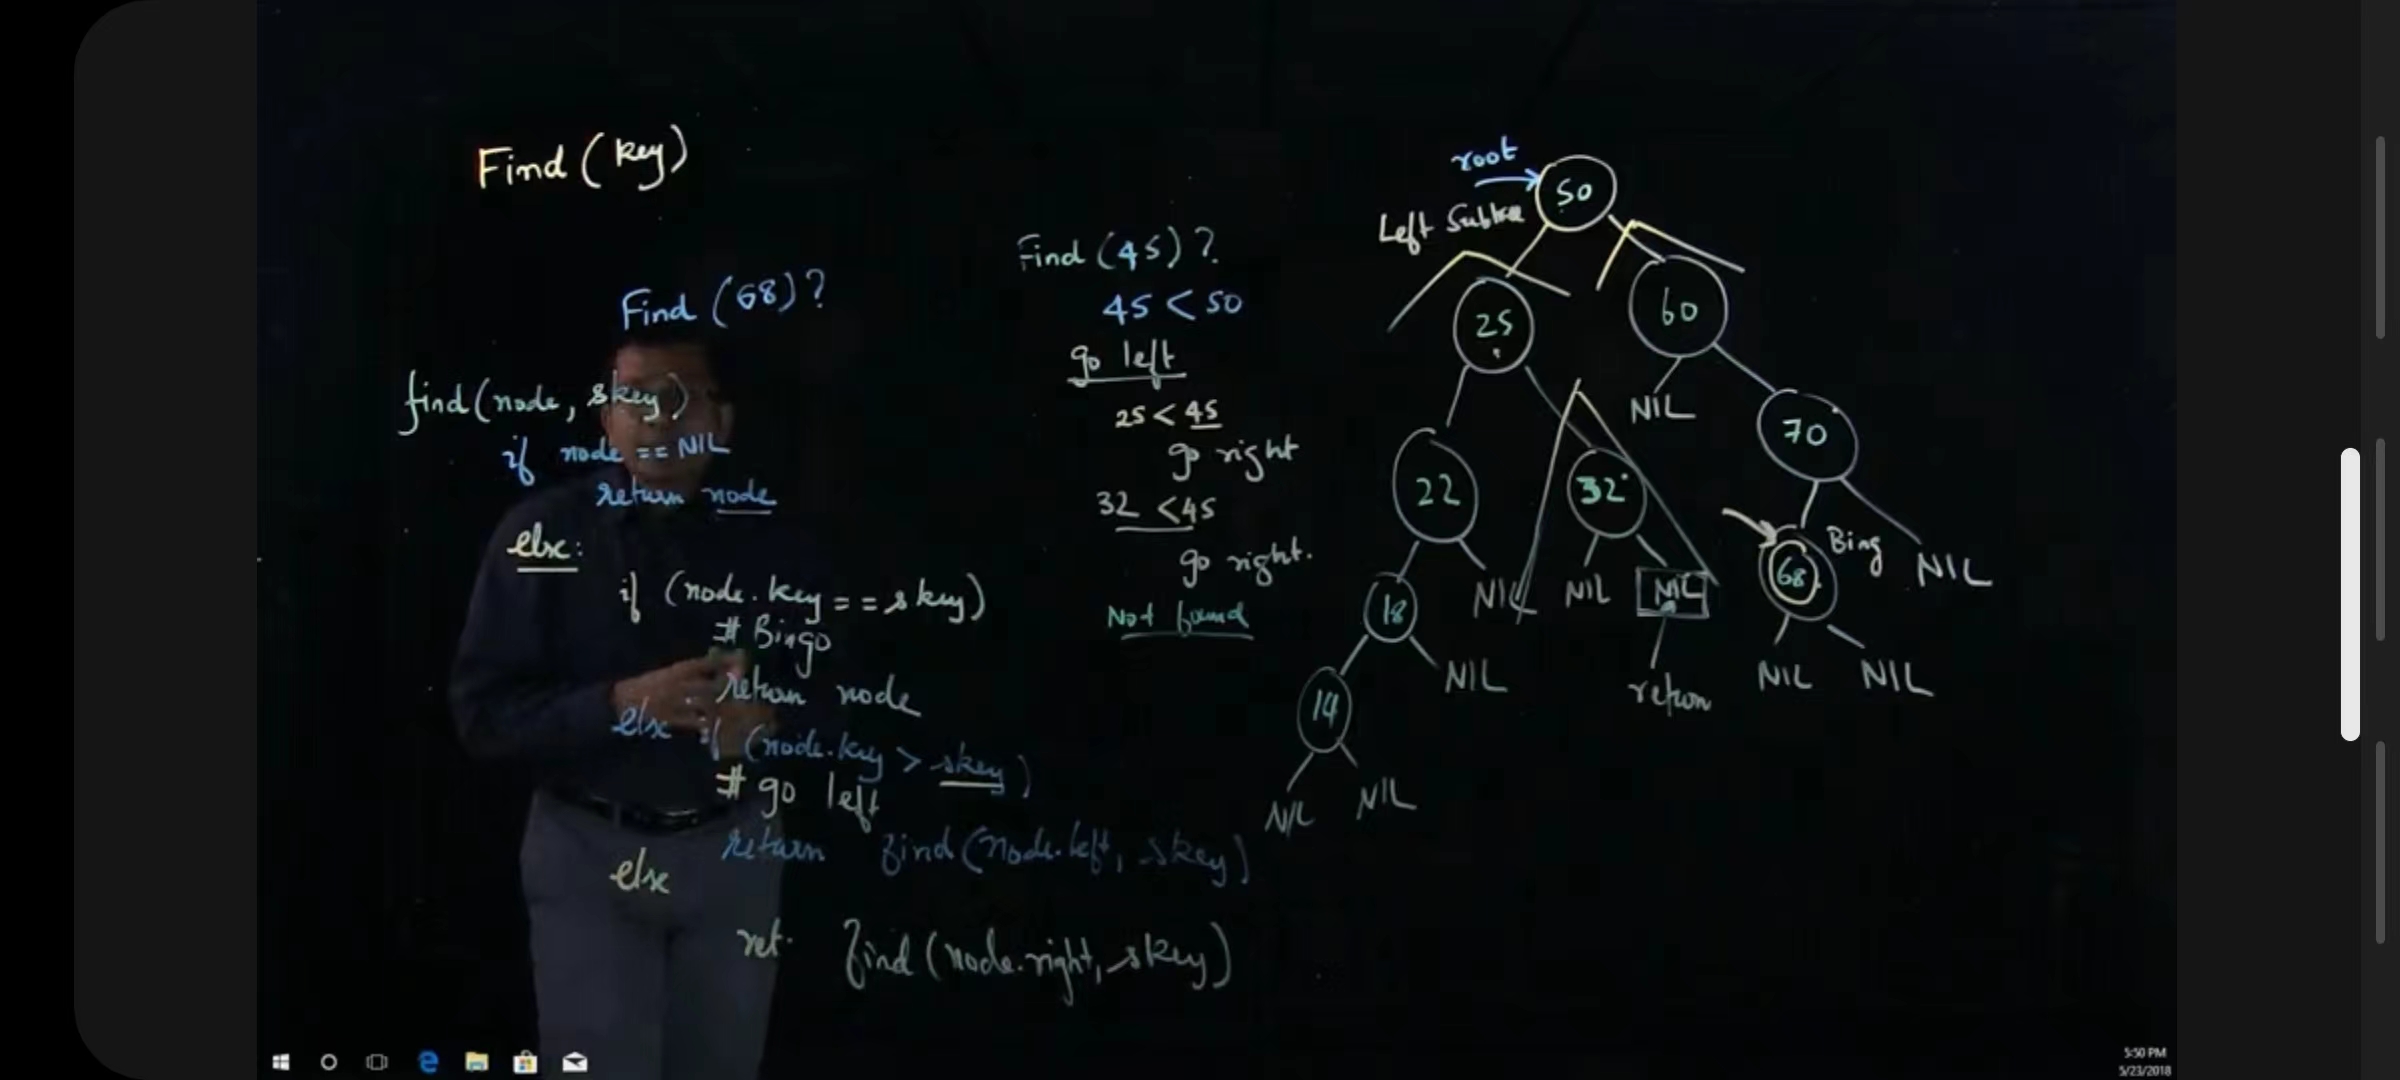 Find (key)
Find (68) ?
find(node, skey)
if node == NIL
return node
else:
if (node.key == skey)
# Bingo
return node
else if (node.key > skey)
# go left
return find(node.left, skey)
else
ret. find(node.right, skey)
Find (45) ?
45 < 50
go left
25 < 45
go right
32 < 45
go right.
Not found
root
50
Left Subtree
25
60
NIL
70
22
32
Bing
68
NIL
18
NIL
NIL
NIL
14
NIL
return
NIL
NIL
NIL
NIL
5:50 PM
5/23/2018